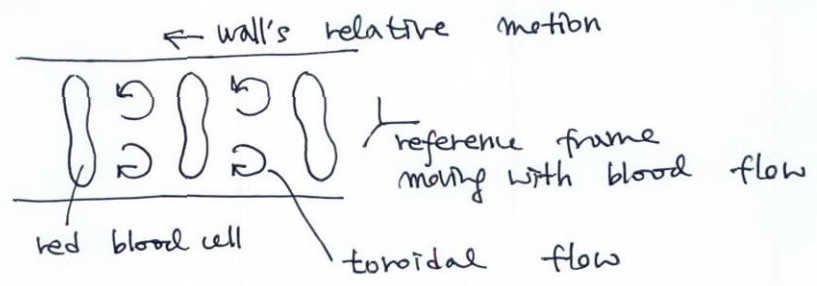 ← wall's relative motion
reference frame
moving with blood flow
red blood cell
toroidal flow